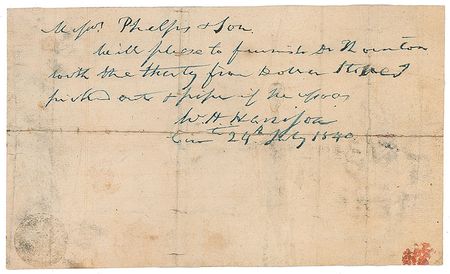 Messrs. Phelps & Son.
Will please to furnish Dr Thornton
with the thirty four Dollar Stove
picked out & pipe if he
W. H. Harrison
Cinn 24th July 1840